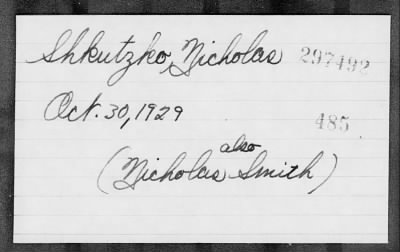 Shkutzko, Nicholas 297492
Oct. 30, 1929
485
also
(Nicholas Smith)